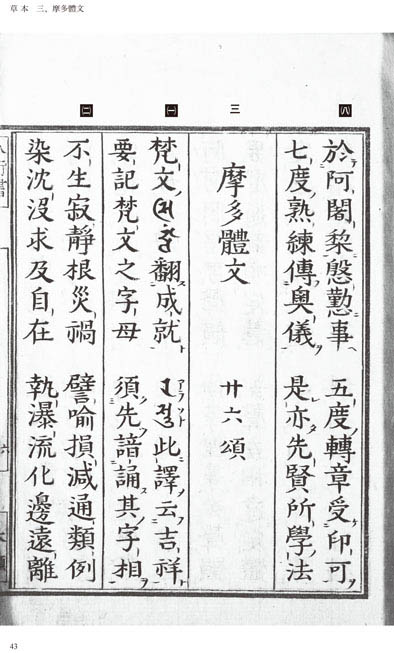 草本 三、摩多體文
〔八〕
三
〔一〕
〔二〕
於阿闍梨慇懃事 五度轉章受印可
七度熟練傳奧儀 是亦先賢所學法
摩多體文 廿六頌
梵文翻成就 此譯云吉祥
要記梵文之字母 須先諳誦其字相
不生寂靜根災禍 譬喻損減通類例
染沈沒求及自在 執瀑流化邊遠離
43